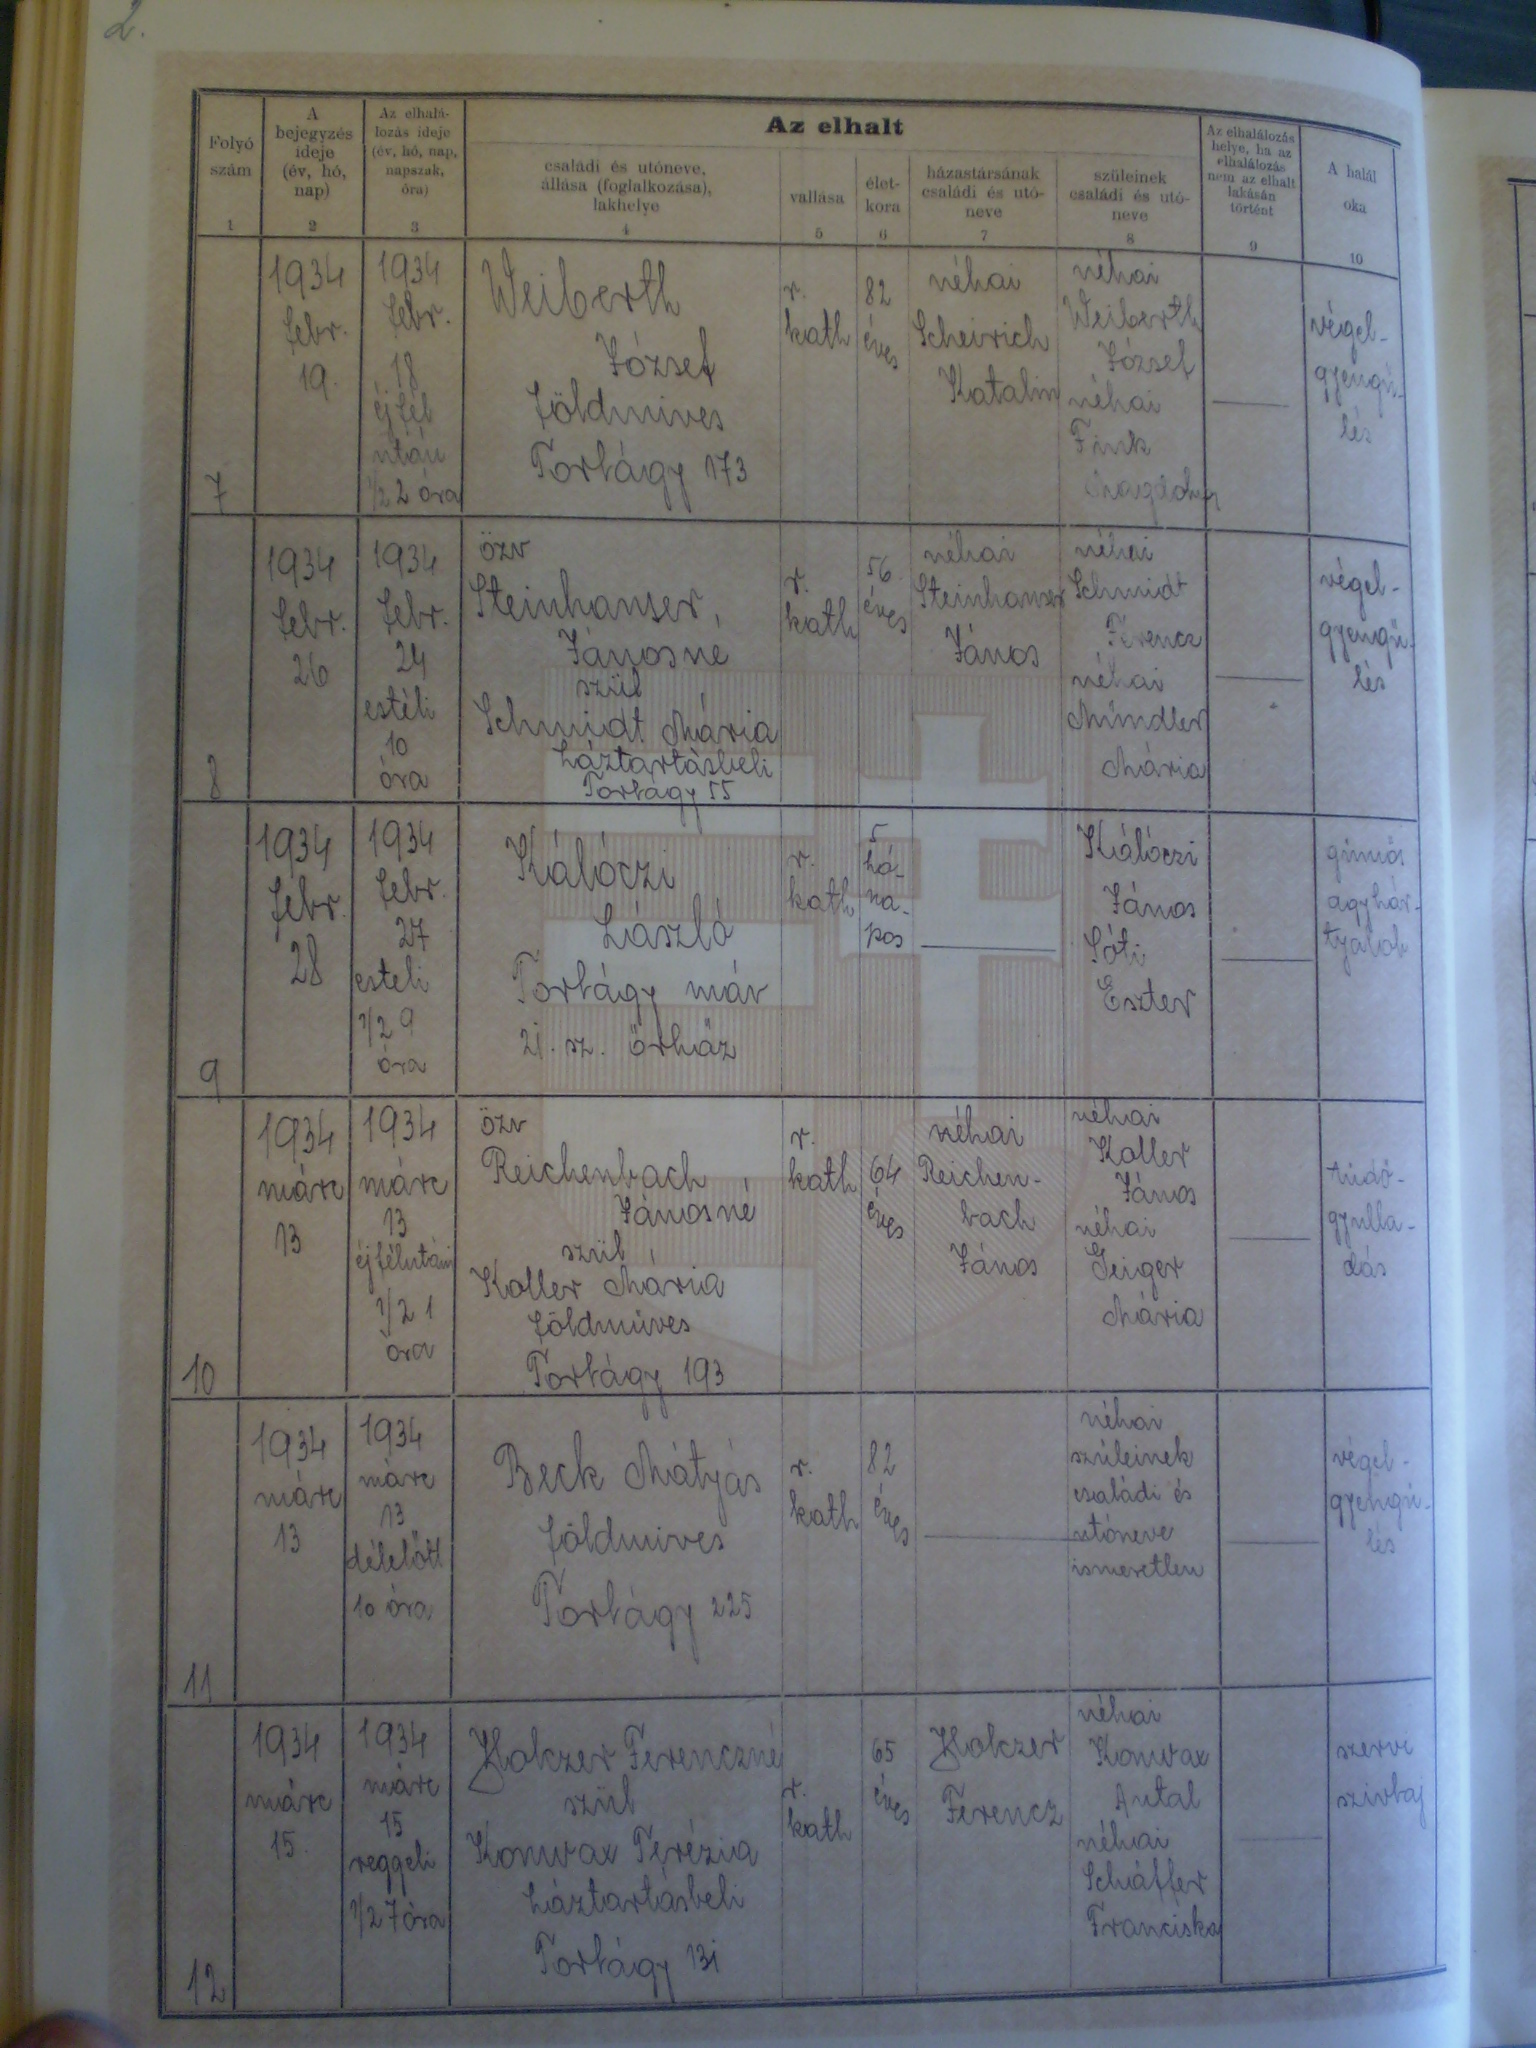 2.
Az elhalt
Folyó
szám
1
A
bejegyzés
ideje
(év, hó,
nap)
2
Az elhalá-
lozás ideje
(év, hó, nap,
napszak,
óra)
3
családi és utóneve,
állása (foglalkozása),
lakhelye
4
vallása
5
élet-
kora
6
házastársának
családi és utó-
neve
7
szüleinek
családi és utó-
neve
8
Az elhalálozás
helye, ha az
elhalálozás
nem az elhalt
lakásán
történt
9
A halál
oka
10
7
1934
febr.
19.
1934
febr.
18
éjfél
után
1/2 2 óra
Weiberth
József
földmives
Torbágy 173
r.
kath
82
éves
néhai
Scheirich
Katalin
néhai
Weiberth
József
néhai
Fink
végel-
gyengü-
lés
8
1934
febr.
26
1934
febr.
24
estéli
10
óra
özv
Steinhauser,
Jánosné
szül
Schmidt Mária
háztartásbeli
Torbágy 55
r.
kath
56
éves
néhai
Steinhauser
János
néhai
Schmidt
Ferencz
néhai
Mindler
Mária
végel-
gyengü-
lés
9
1934
febr.
28
1934
febr.
27
esteli
1/2 9
óra
Kálóczi
László
Torbágy máv
21. sz. őrház
r.
kath
5
hó-
na-
pos
Kálóczi
János
Sóti
Eszter
agyhár-
tyalob
10
1934
márc
13
1934
márc
13
éjfélutáni
1/2 1
óra
özv
Reichenbach
Jánosné
szül
Koller Mária
földmüves
Torbágy 193
r.
kath
64
éves
néhai
Reichen-
bach
János
néhai
Koller
János
néhai
Geiger
Mária
tüdő-
gyulla-
dás
11
1934
márc
13
1934
márc
13
délelőtt
10 óra
Beck Mátyás
földmives
Torbágy 225
r.
kath
82
éves
néhai
szüleinek
családi és
utóneve
ismeretlen
végel-
gyengü-
lés
12
1934
márc
15.
1934
márc
15
reggeli
1/2 7 óra
Holczer Ferenczné
szül
Konrax Terézia
háztartásbeli
Torbágy 131
r.
kath
65
éves
Holczer
Ferencz
néhai
Konrax
Antal
néhai
Schäffer
Franciska
szervi
szivbaj